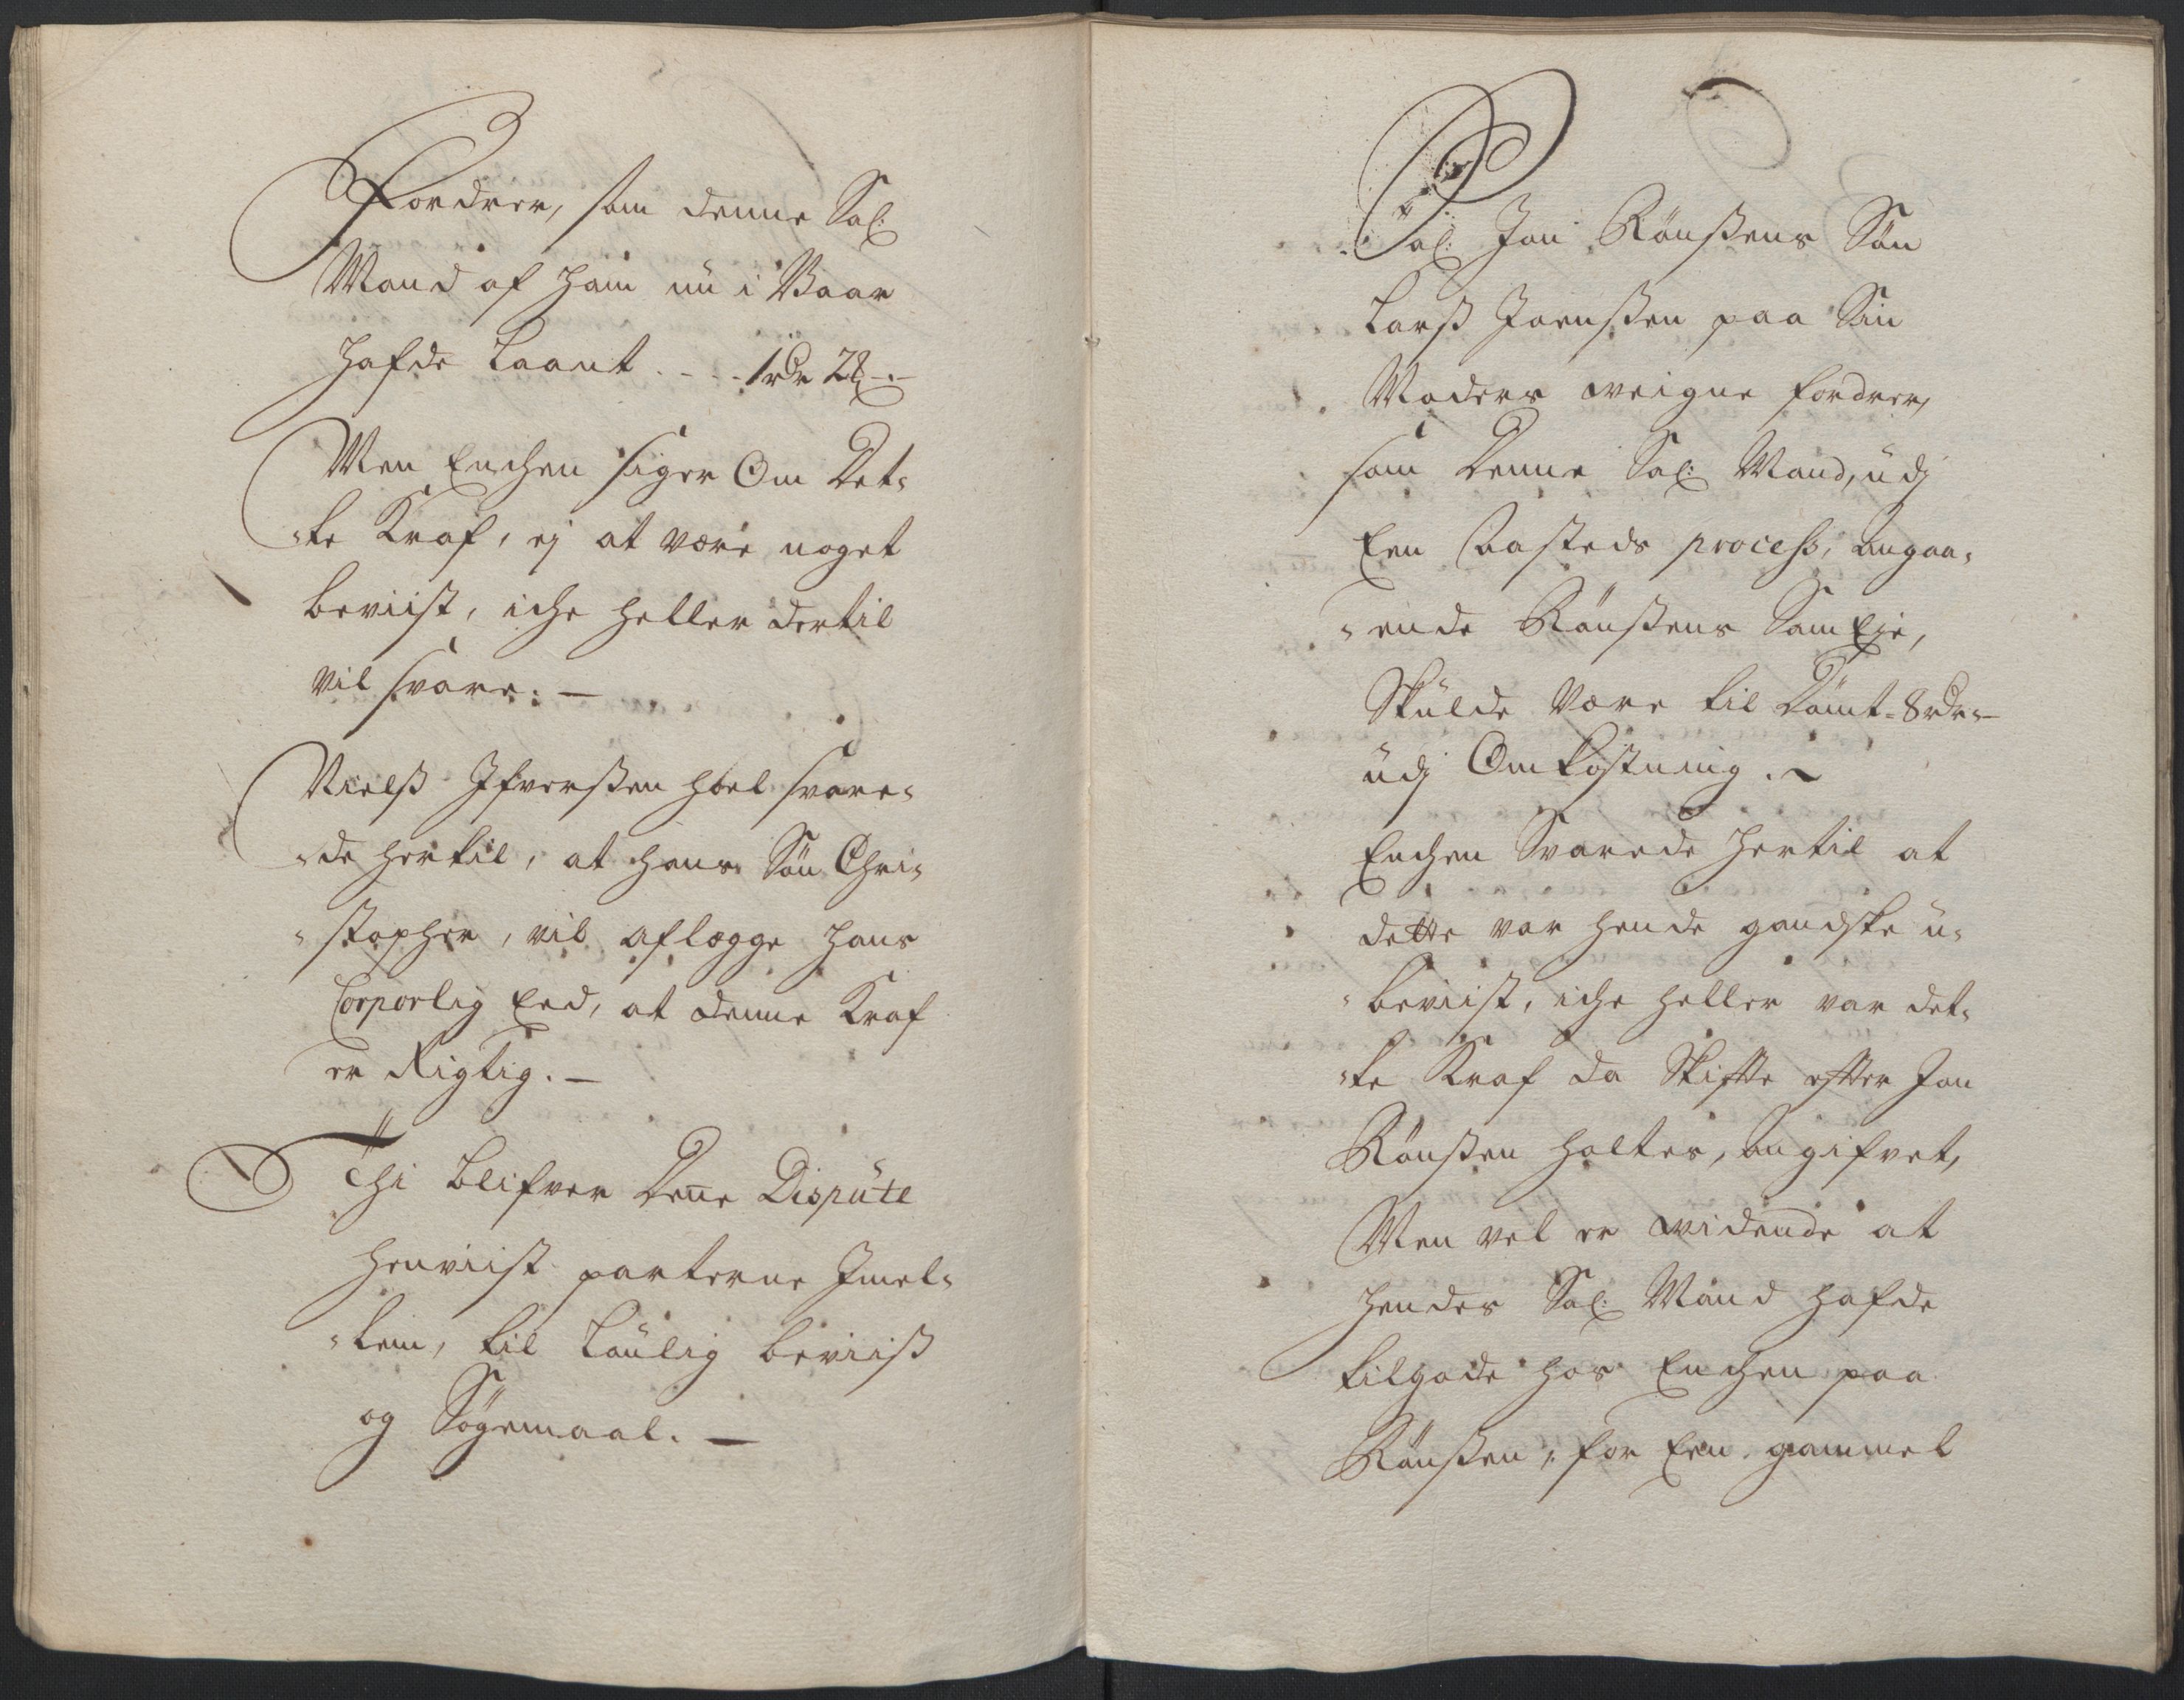 Fordrer, som denne Sal:
Mand af ham nu i Vaar
hafde Laant . - - - 1 rdr 2 ₰ -.-
Men Enchen siger Om Det-
-te Kraf, ej at være noget
beviist, iche heller dertil
vil svare: —
Nielß Ifverßen Hoel svare-
-de hertil, at hans Søn Chri-
-stopher, vil aflægge hans
Corporlig Eed, at denne Kraf
er Rigtig. —
Thi blifver Denne Dispüte
henviist parterne Imel-
-lem, til Laulig beviiß
og Søgemaal. —
Sal: Jon Rönßens Søn
Larß Joenßen paa Sin
Moders weigne fordrer,
som Denne Sal: Mand, udj
Een Aasteds process, angaa-
-ende Rönßens SamEje,
Skulde være til Dömt - 8 rdr -
udj Omkostning . ~
Enchen Svarede hertil at
dette var hende gandske u-
-beviist, iche heller var det-
-te Kraf da Skifte efter Jon
Rönßen holtes, angifvet,
Men vel er widende at
hendes Sal: Mand hafde
tilgode hos Enchen paa
Rönßen, for Een gammel